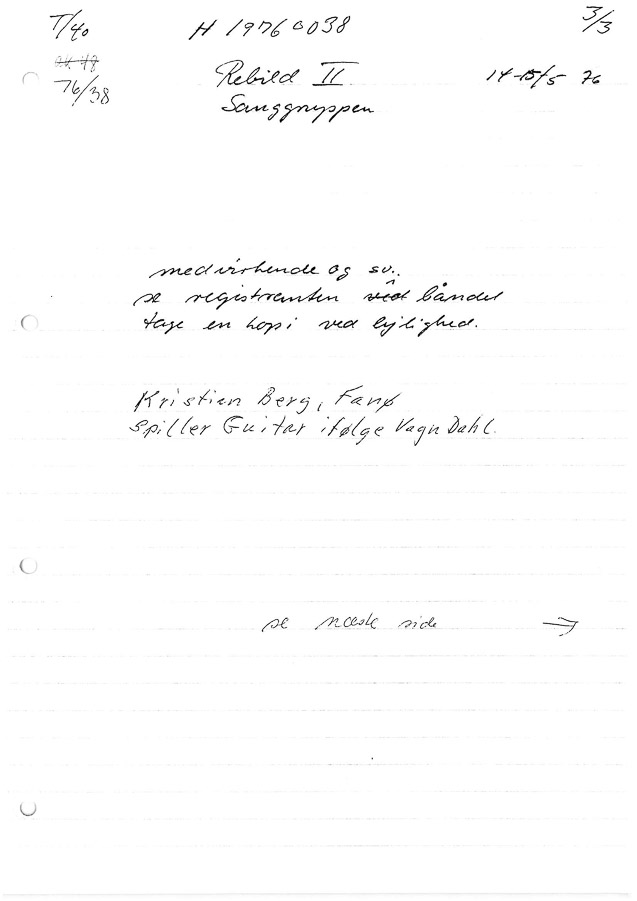 T/40
H 1976 0038
3/3
76/38
Rebild II
14-15/5 76
Sanggruppen
medvirkende og sv..
se registranten ved båndet
tage en kopi ved lejlighed.
Kristian Berg, Fanø
Spiller Guitar ifølge Vagn Dahl.
se næste side →